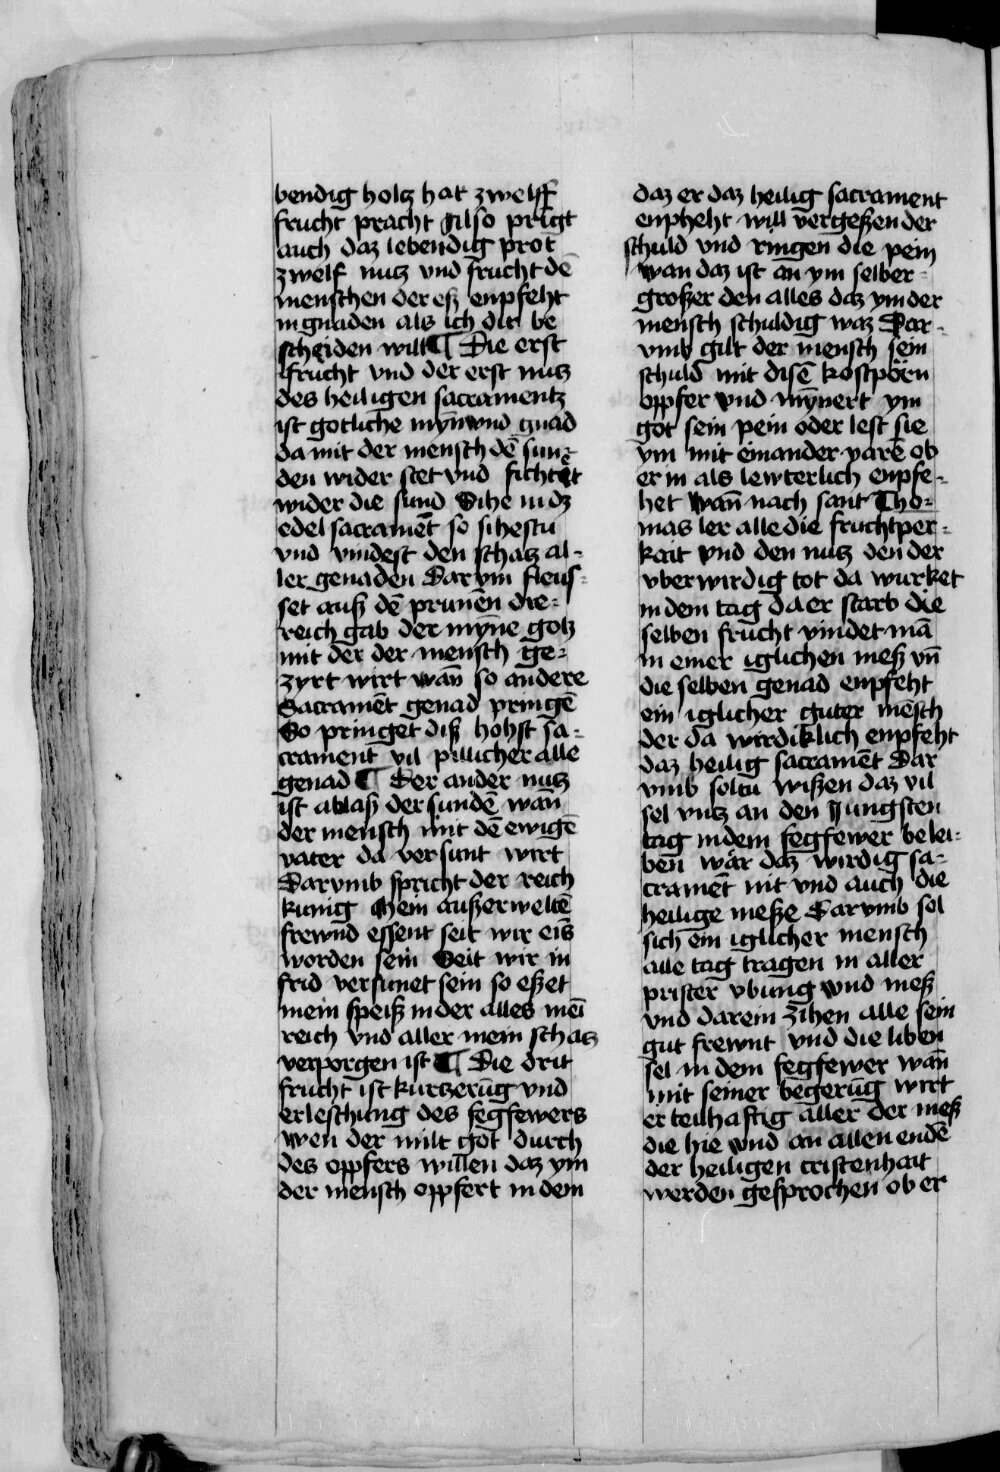 bendig holcz hat zwelff
frucht pracht Also pringt
auch daz lebendig prot
zwelf nucz vnd frucht dē
menschen der eß enpfeht
in gnaden als ich dir be
scheiden will ¶ Die erst
frucht vnd der erst nucz
des heiligen sacramentz
ist gotliche mȳn vnd gnad
da mit der mensch dē sun-
den wider stet vnd fichtet
wider die sund Sihe in dz
edel sacramēt so sihestu
vnd vindest den schacz al-
ler genaden Dar vm fleus-
set auß dē prunēn die-
reich gab der mȳne gotz
mit der der mensch ge-
zyrt wirt wān so andere
Sacramēt genad pringē
So pringet diß hohst sa-
crament vil pillicher alle
genad ¶ Der ander nucz
ist ablaß der sundē wān
der mensch mit dē ewigē
vater da versunt wirt
Darvmb spricht der reich
kunig Mein außerweltē
frewnd essent seit wir eis
worden sein Seit wir in
frid versunet sein so eßet
mein speiß in der alles mei
reich vnd aller mein schacz
verporgen ist ¶ Die drit
frucht ist kurczerūg vnd
erleschung des fegfewers
wen der milt got durch
des oppfers willen daz ym
der mensch oppfert in dem
daz er daz heilig sacrament
enpheht will vergeßen der
schuld vnd ringen die pein
wan daz ist an ym selber-
großer den alles daz ym der
mensch schuldig waz Dar-
vmb gilt der mensch sein
schuld mit disē kostpörn
oppfer vnd mȳnert ym
got sein pein oder lest sie
ym mit einander varē ob
er in als lewterlich enpfe-
het Wān nach sant Tho-
mas ler alle die fruchtper-
kait vnd den nucz den der
vberwirdig tot da wurket
in dem tag da er starb die
selben frucht vindet mā
in einer iglichen meß vn̄
die selben genad enpfeht
ein iglicher guter mēsch
der da wirdiklich enpfeht
daz heilig sacramēt Dar
vmb soltu wißen daz vil
sel vncz an den Jungsten
tag in dem fegfewer belei-
ben wär daz wirdig sa-
cramēt nit vnd auch die
heilige meße Darvmb sol
sich ein iglicher mensch
alle tag tragen in aller
prister vbung vnd meß
vnd darein zihen alle sein
gut frewnt vnd die liben
sel in dem fegfewer wān
mit seiner begerūg wirt
er teilhaftig aller der meß
die hie vnd an allen endē
der heiligen cristenhait
werden gesprochen ob er